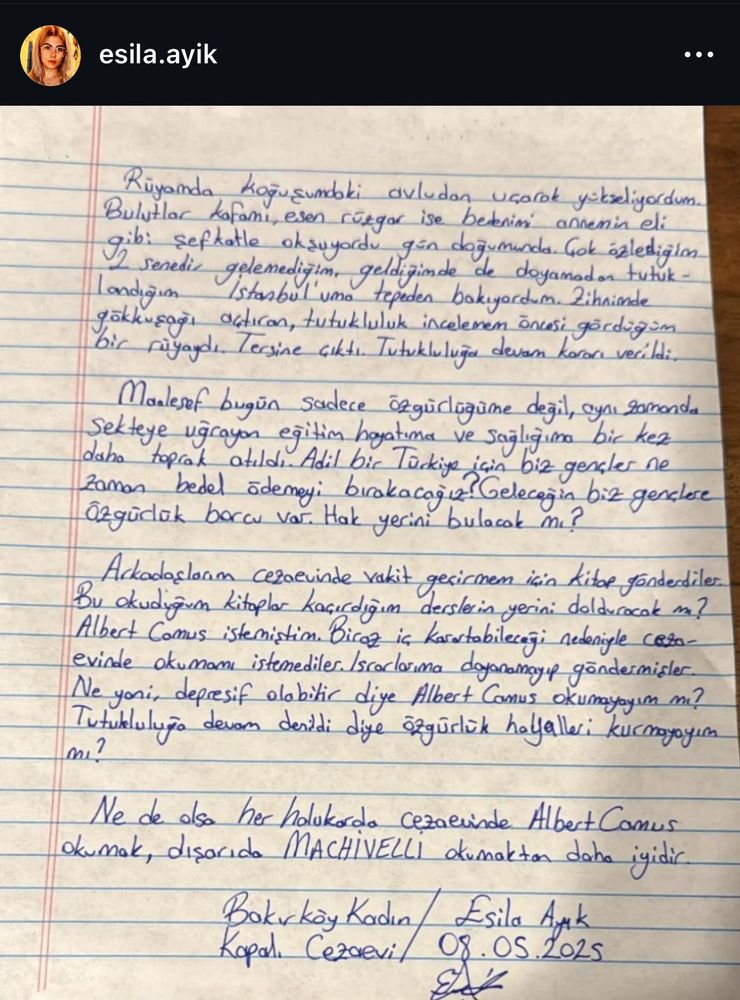 esila.ayik
Rüyamda koğuşumdaki avludan uçarak yükseliyordum.
Bulutlar kafamı, esen rüzgar ise bedenimi annemin eli
gibi şefkatle okşuyordu gün doğumunda. Çok özlediğim
2 senedir gelemediğim, geldiğimde de doyamadan tutuk-
landığım İstanbul'uma tepeden bakıyordum. Zihnimde
gökkuşağı açtıran, tutukluluk incelemem öncesi gördüğüm
bir rüyaydı. Tersine çıktı. Tutukluluğa devam kararı verildi.
Maalesef bugün sadece özgürlüğüme değil, aynı zamanda
sekteye uğrayan eğitim hayatıma ve sağlığıma bir kez
daha toprak atıldı. Adil bir Türkiye için biz gençler ne
zaman bedel ödemeyi bırakacağız? Geleceğin biz gençlere
özgürlük borcu var. Hak yerini bulacak mı?
Arkadaşlarım cezaevinde vakit geçirmem için kitap gönderdiler.
Bu okuduğum kitaplar kaçırdığım derslerin yerini dolduracak mı?
Albert Camus istemiştim. Biraz iç karartabileceği nedeniyle ceza-
evinde okumamı istemediler. Israrlarıma dayanamayıp göndermişler.
Ne yani, depresif olabilir diye Albert Camus okumayayım mı?
Tutukluluğa devam denildi diye özgürlük hayalleri kurmayayım
mı?
Ne de olsa her halukarda cezaevinde Albert Camus
okumak, dışarıda MACHİVELLİ okumaktan daha iyidir.
Bakırköy Kadın / Esila Ayık
Kapalı Cezaevi / 08.05.2025